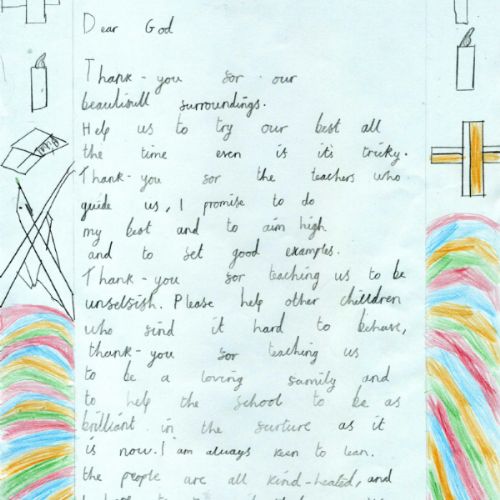 Dear God
Thank-you for our
beautifull surroundings.
Help us to try our best all
the time even is it's tricky.
Thank-you for the teachers who
guide us, I promise to do
my best and to aim high
and to set good examples.
Thank-you for teaching us to be
unselfish. Please help other children
who find it hard to behave,
thank-you for teaching us
to be a loving family and
to help the school to be as
brilliant in the furture as it
is now. I am always keen to lean.
the people are all kind-heated, and